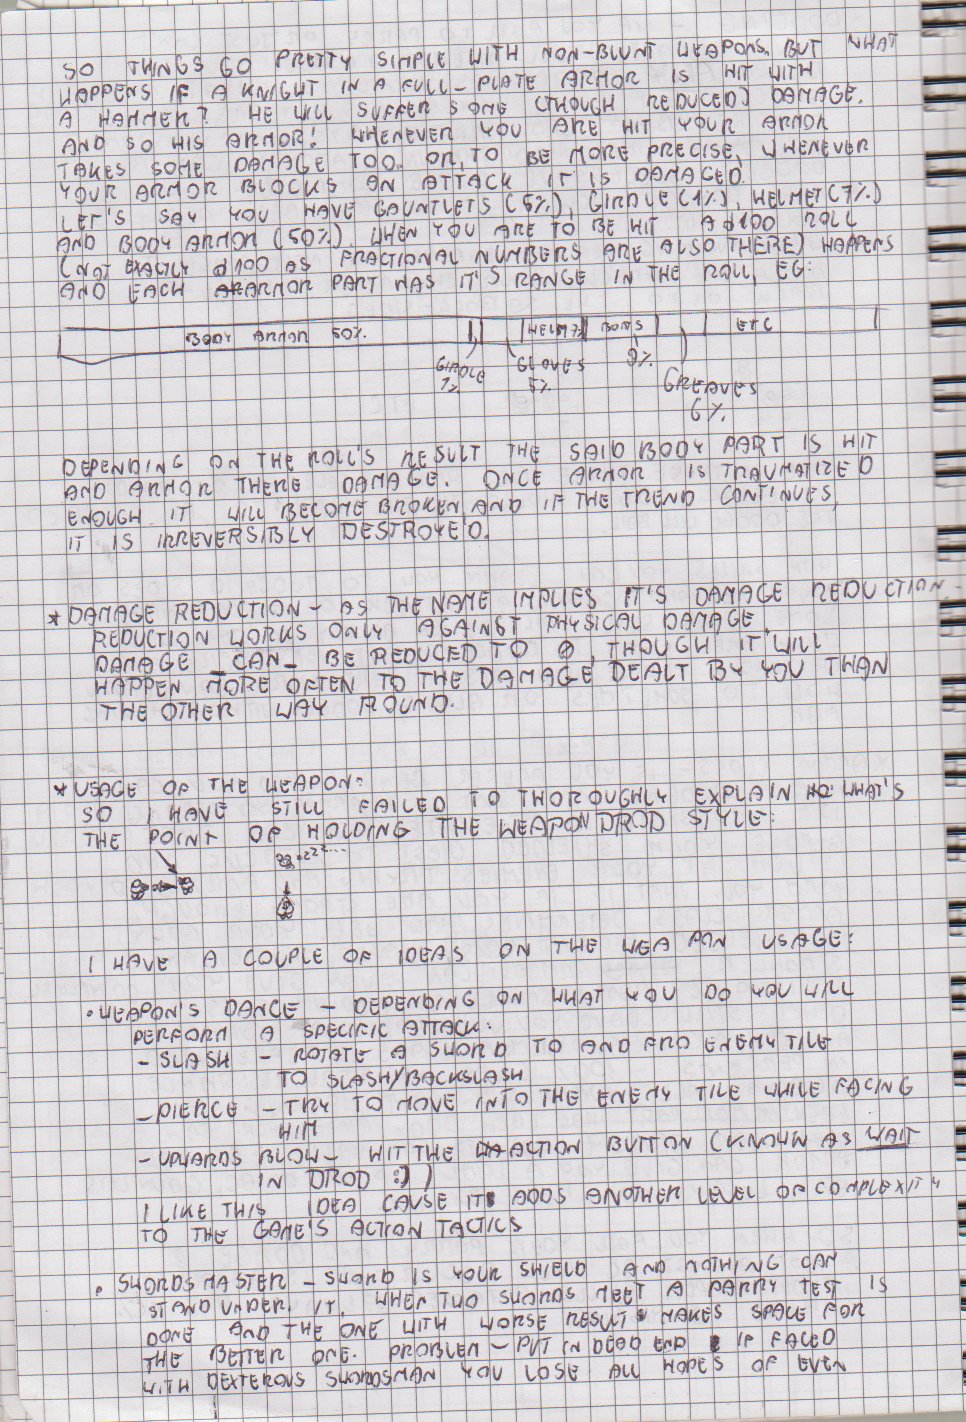 SO THINGS GO PRETTY SIMPLE WITH NON-BLUNT WEAPONS. BUT WHAT
HAPPENS IF A KNIGHT IN A FULL-PLATE ARMOR IS HIT WITH
A HAMMER? HE WILL SUFFER SOME (THOUGH REDUCED) DAMAGE.
AND SO HIS ARMOR! WHENEVER YOU ARE HIT YOUR ARMOR
TAKES SOME DAMAGE TOO. OR, TO BE MORE PRECISE, WHENEVER
YOUR ARMOR BLOCKS AN ATTACK IT IS DAMAGED.
LET'S SAY YOU HAVE GAUNTLETS (5%), GIRDLE (1%), HELMET (7%)
AND BODY ARMOR (50%). WHEN YOU ARE TO BE HIT A d100 ROLL
(NOT EXACTLY d100 AS FRACTIONAL NUMBERS ARE ALSO THERE) HAPPENS
AND EACH ARMOR PART HAS IT'S RANGE IN THE ROLL, EG:
BODY ARMOR 50% HELM 7% BOOTS ETC
GIRDLE 1% GLOVES 5% 9% GREAVES 6%
DEPENDING ON THE ROLL'S RESULT THE SAID BODY PART IS HIT
AND ARMOR THERE DAMAGE. ONCE ARMOR IS TRAUMATIZED
ENOUGH IT WILL BECOME BROKEN, AND IF THE TREND CONTINUES,
IT IS IRREVERSIBLY DESTROYED.
* DAMAGE REDUCTION - AS THE NAME IMPLIES IT'S DAMAGE REDUCTION.
REDUCTION WORKS ONLY AGAINST PHYSICAL DAMAGE.
DAMAGE _CAN_ BE REDUCED TO 0, THOUGH IT WILL
HAPPEN MORE OFTEN TO THE DAMAGE DEALT BY YOU THAN
THE OTHER WAY ROUND.
* USAGE OF THE WEAPON:
SO I HAVE STILL FAILED TO THOROUGHLY EXPLAIN WHAT'S
THE POINT OF HOLDING THE WEAPON DROD STYLE:
I HAVE A COUPLE OF IDEAS ON THE WEAPON USAGE:
• WEAPON'S DANCE - DEPENDING ON WHAT YOU DO YOU WILL
PERFORM A SPECIFIC ATTACK:
- SLASH - ROTATE A SWORD TO AND FRO ENEMY TILE
TO SLASH/BACKSLASH
- PIERCE - TRY TO MOVE INTO THE ENEMY TILE WHILE FACING
HIM
- UPWARDS BLOW - HIT THE ACTION BUTTON (KNOWN AS WAIT
IN DROD :))
I LIKE THIS IDEA CAUSE IT ADDS ANOTHER LEVEL OF COMPLEXITY
TO THE GAME'S ACTION TACTICS
• SWORDSMASTER - SWORD IS YOUR SHIELD AND NOTHING CAN
STAND UNDER IT. WHEN TWO SWORDS MEET A PARRY TEST IS
DONE AND THE ONE WITH WORSE RESULT MAKES SPACE FOR
THE BETTER ONE. PROBLEM - PUT IN DEAD END IF FACED
WITH DEXTEROUS SWORDSMAN YOU LOSE ALL HOPES OF EVEN